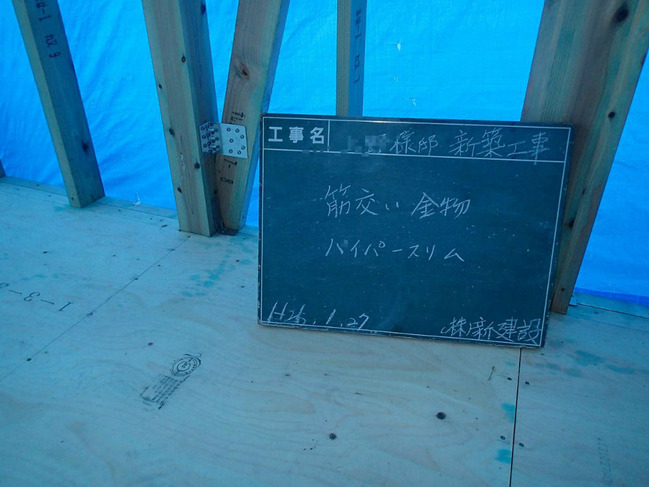 工事名 様邸 新築工事
筋交い 金物
ハイパースリム
H26.1.27
(株)新建設
1-8-